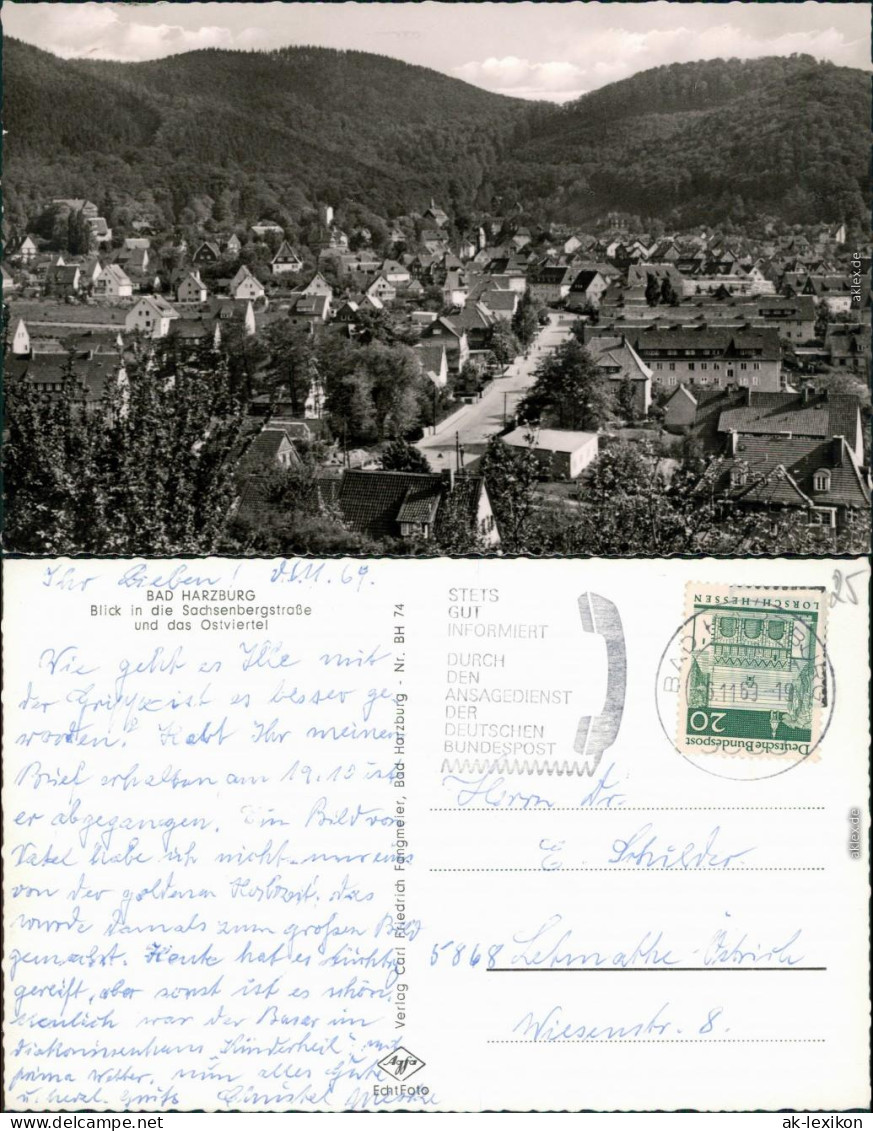 aklex.de
Ihr Lieben! d. 5.11.69.
BAD HARZBURG
Blick in die Sachsenbergstraße
und das Ostviertel
Wie geht es Ille mit
der Grippe ist es besser ge
worden? Habt Ihr meinen
Brief erhalten am 19.10 ist
er abgegangen. Ein Bild von
Vatel habe ich nicht nur eins
von der goldenen Hochzeit, das
wurde damals zum großen Bild
gemacht. Heute hat es tüchtig
gereift, aber sonst ist es schön.
Neulich war der Basar im
diakonissenhaus "Kinderheil",
prima Wetter, nun alles Gute
u. herzl. Grüße Christel
Verlag Carl Friedrich Fangmeier, Bad Harzburg - Nr. BH 74
Agfa
Echt Foto
STETS
GUT
INFORMIERT
DURCH
DEN
ANSAGEDIENST
DER
DEUTSCHEN
BUNDESPOST
BAD
11.69-19
LORSCH/HESSEN
20
Deutsche Bundespost
25
Herrn Dr.
E. Schulder.
5868 Letmathe-Östrich
Wiesenstr. 8.
aklex.de
www.ak-lexikon.de
ak-lexikon